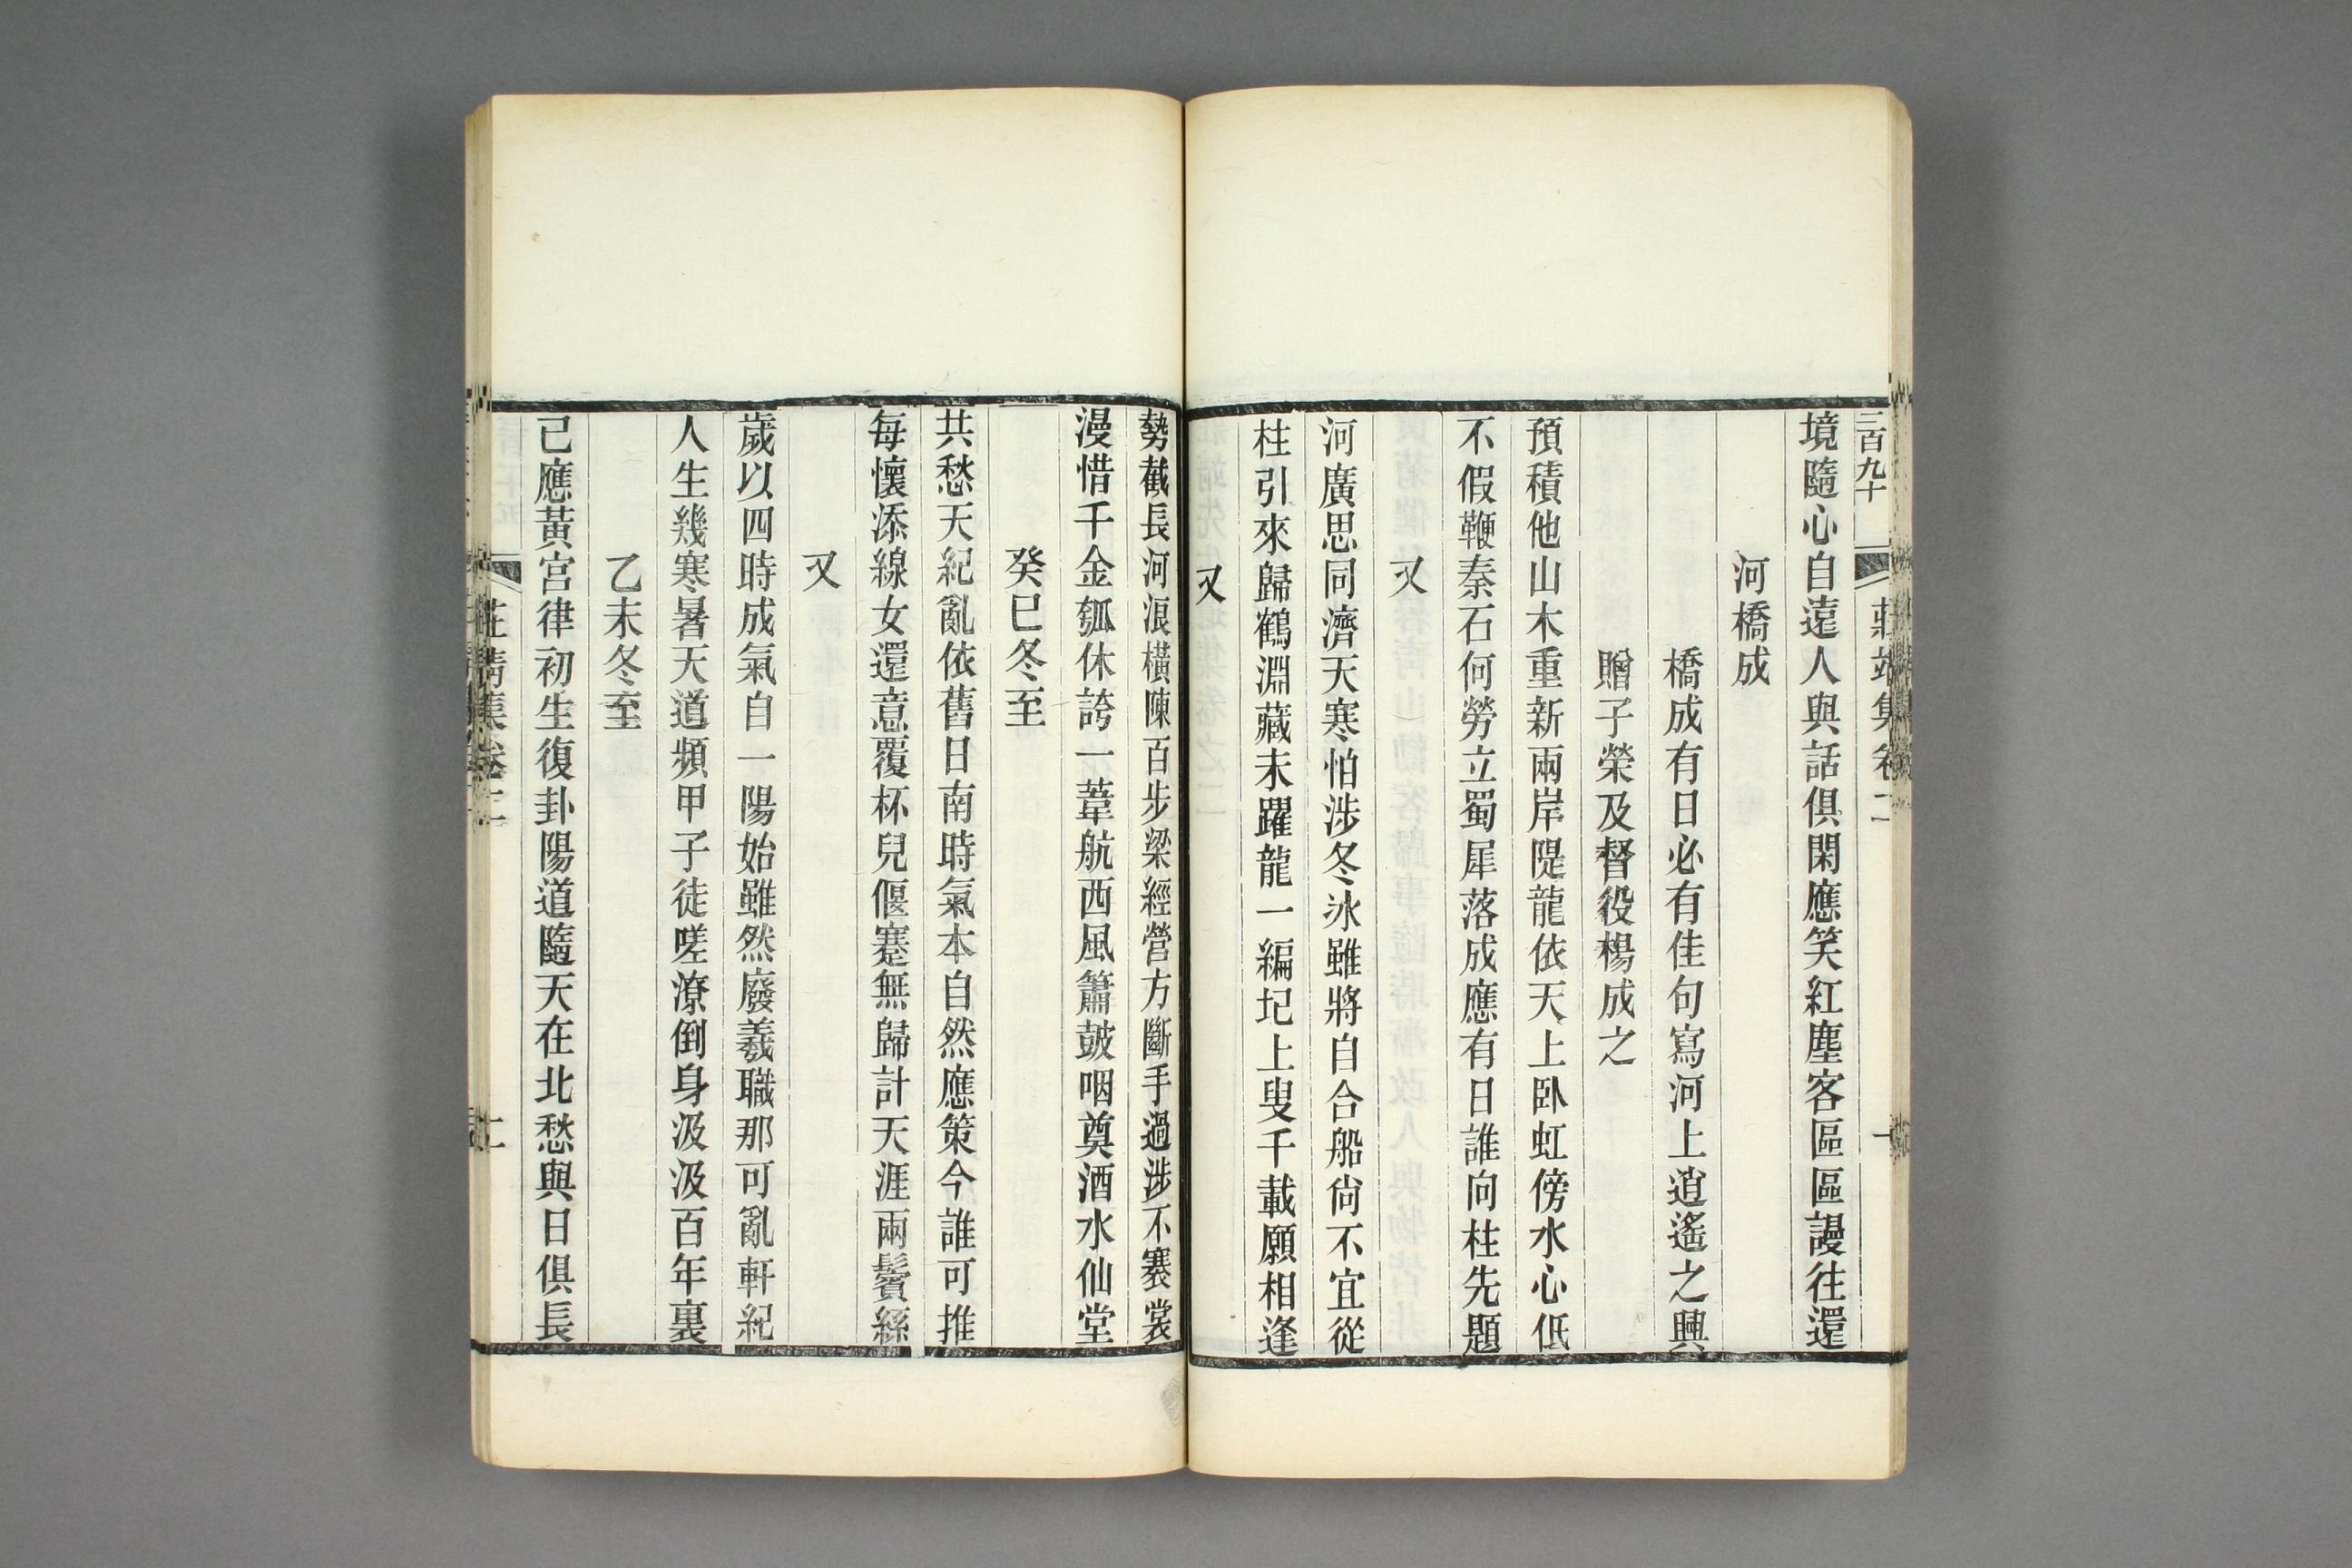 三百九十
莊靖集卷二
一
境隨心自遠人與話俱閑應笑紅塵客區區謾往還
河橋成
橋成有日必有佳句寫河上逍遙之興
贈子榮及督役楊成之
預積他山木重新兩岸隄龍依天上臥虹傍水心低
不假鞭秦石何勞立蜀犀落成應有日誰向柱先題
又
河廣思同濟天寒怕涉冬冰雖將自合船尙不宜從
柱引來歸鶴淵藏未躍龍一編圯上叟千載願相逢
又
勢截長河浪橫陳百步梁經營方斷手過涉不褰裳
漫惜千金瓠休誇一葦航西風簫鼓咽奠酒水仙堂
癸巳冬至
共愁天紀亂依舊日南時氣本自然應策今誰可推
每懷添線女還意覆杯兒偃蹇無歸計天涯兩鬢絲
又
歲以四時成氣自一陽始雖然廢羲職那可亂軒紀
人生幾寒暑天道頻甲子徒嗟潦倒身汲汲百年裏
乙未冬至
己應黃宮律初生復卦陽道隨天在北愁與日俱長
莊靖集卷二